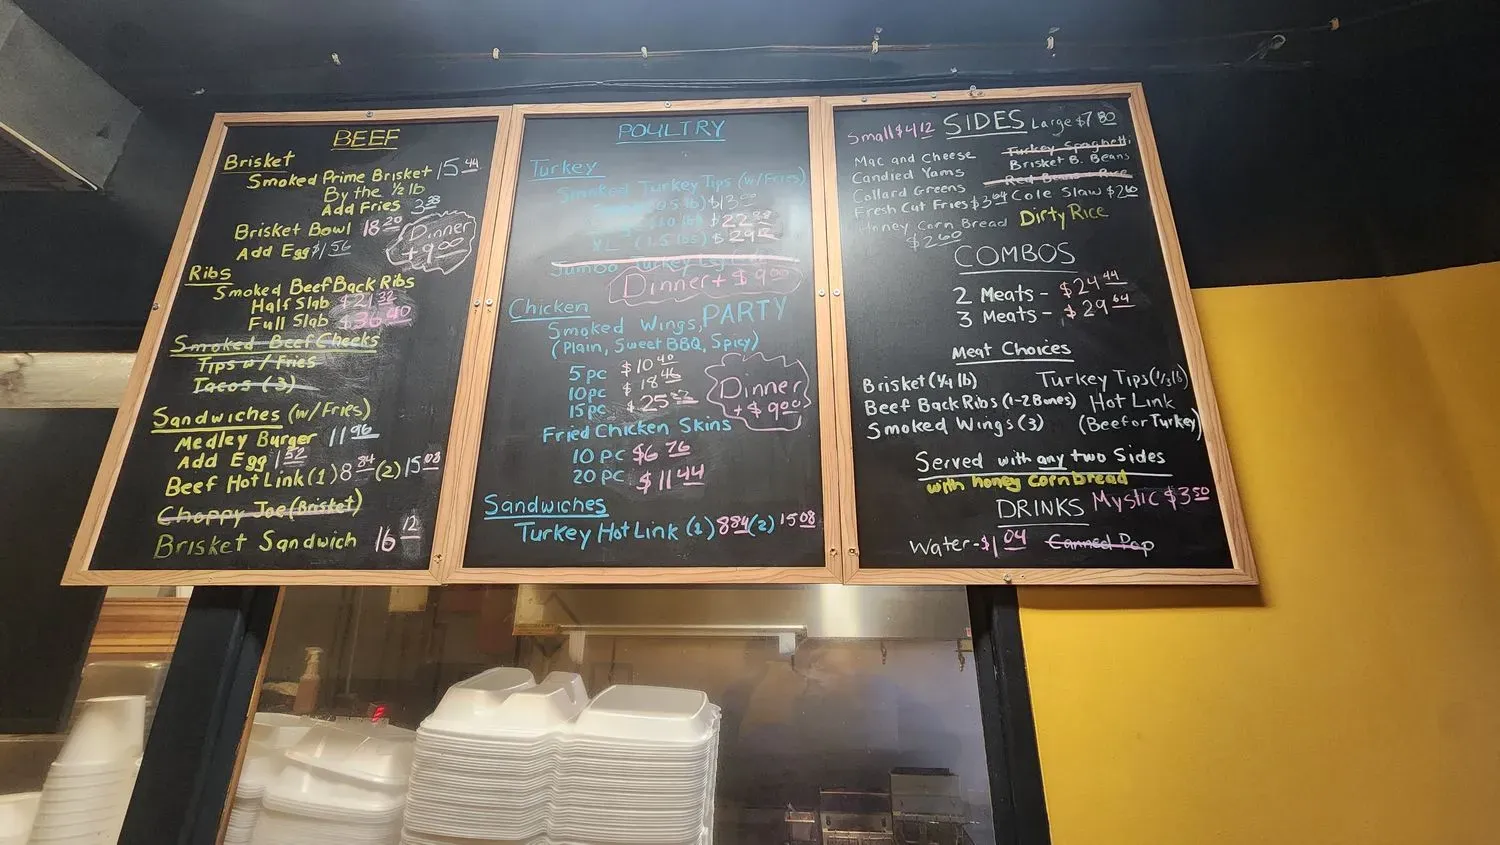 BEEF
Brisket
Smoked Prime Brisket 15.44
By the 1/2 lb
Add Fries 3.38
Brisket Bowl 18.20
Add Egg $1.56
Dinner
+ 9.00
Ribs
Smoked Beef Back Ribs
Half Slab $21.32
Full Slab $36.40
Smoked Beef Cheeks
Tips w/ Fries
Tacos (3)
Sandwiches (w/Fries)
Medley Burger 11.96
Add Egg 1.52
Beef Hot Link (1) 8.84 (2) 15.08
Choppy Joe (Brisket)
Brisket Sandwich 16.12
POULTRY
Turkey
Smoked Turkey Tips (w/Fries)
(0.5 lb) $13.00
(1.0 lb) $22.88
XL (1.5 lbs) $29.12
Jumbo Turkey Leg
Dinner + $9.00
Chicken
Smoked Wings, PARTY
(Plain, Sweet BBQ, Spicy)
5 pc $10.40
10 pc $18.46
15 pc $25.22
Dinner
+ $9.00
Fried Chicken Skins
10 pc $6.76
20 pc $11.44
Sandwiches
Turkey Hot Link (1) 8.84 (2) 15.08
Small $4.12 SIDES Large $7.80
Mac and Cheese
Candied Yams
Collard Greens
Fresh Cut Fries $3.64
Honey Corn Bread
$2.60
Turkey Spaghetti
Brisket B. Beans
Red Beans Rice
Cole Slaw $2.60
Dirty Rice
COMBOS
2 Meats - $24.44
3 Meats - $29.64
Meat Choices
Brisket (1/4 lb) Turkey Tips (1/3 lb)
Beef Back Ribs (1-2 Bones) Hot Link
Smoked Wings (3) (Beef or Turkey)
Served with any two Sides
with honey corn bread
DRINKS Mystic $3.50
Water - $1.04 Canned Pop